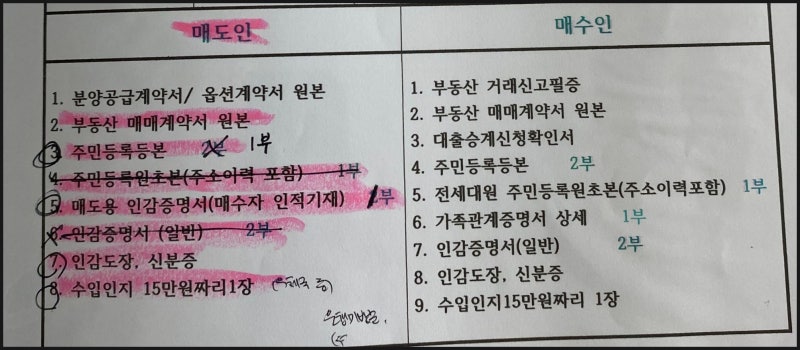 매도인
1. 분양공급계약서/ 옵션계약서 원본
2. 부동산 매매계약서 원본
3. 주민등록등본 2부 1부
4. 주민등록원초본(주소이력 포함) 1부
5. 매도용 인감증명서(매수자 인적기재) 1부
6. 인감증명서 (일반) 2부
7. 인감도장, 신분증
8. 수입인지 15만원짜리1장
매수인
1. 부동산 거래신고필증
2. 부동산 매매계약서 원본
3. 대출승계신청확인서
4. 주민등록등본 2부
5. 전세대원 주민등록원초본(주소이력포함) 1부
6. 가족관계증명서 상세 1부
7. 인감증명서(일반) 2부
8. 인감도장, 신분증
9. 수입인지15만원짜리 1장